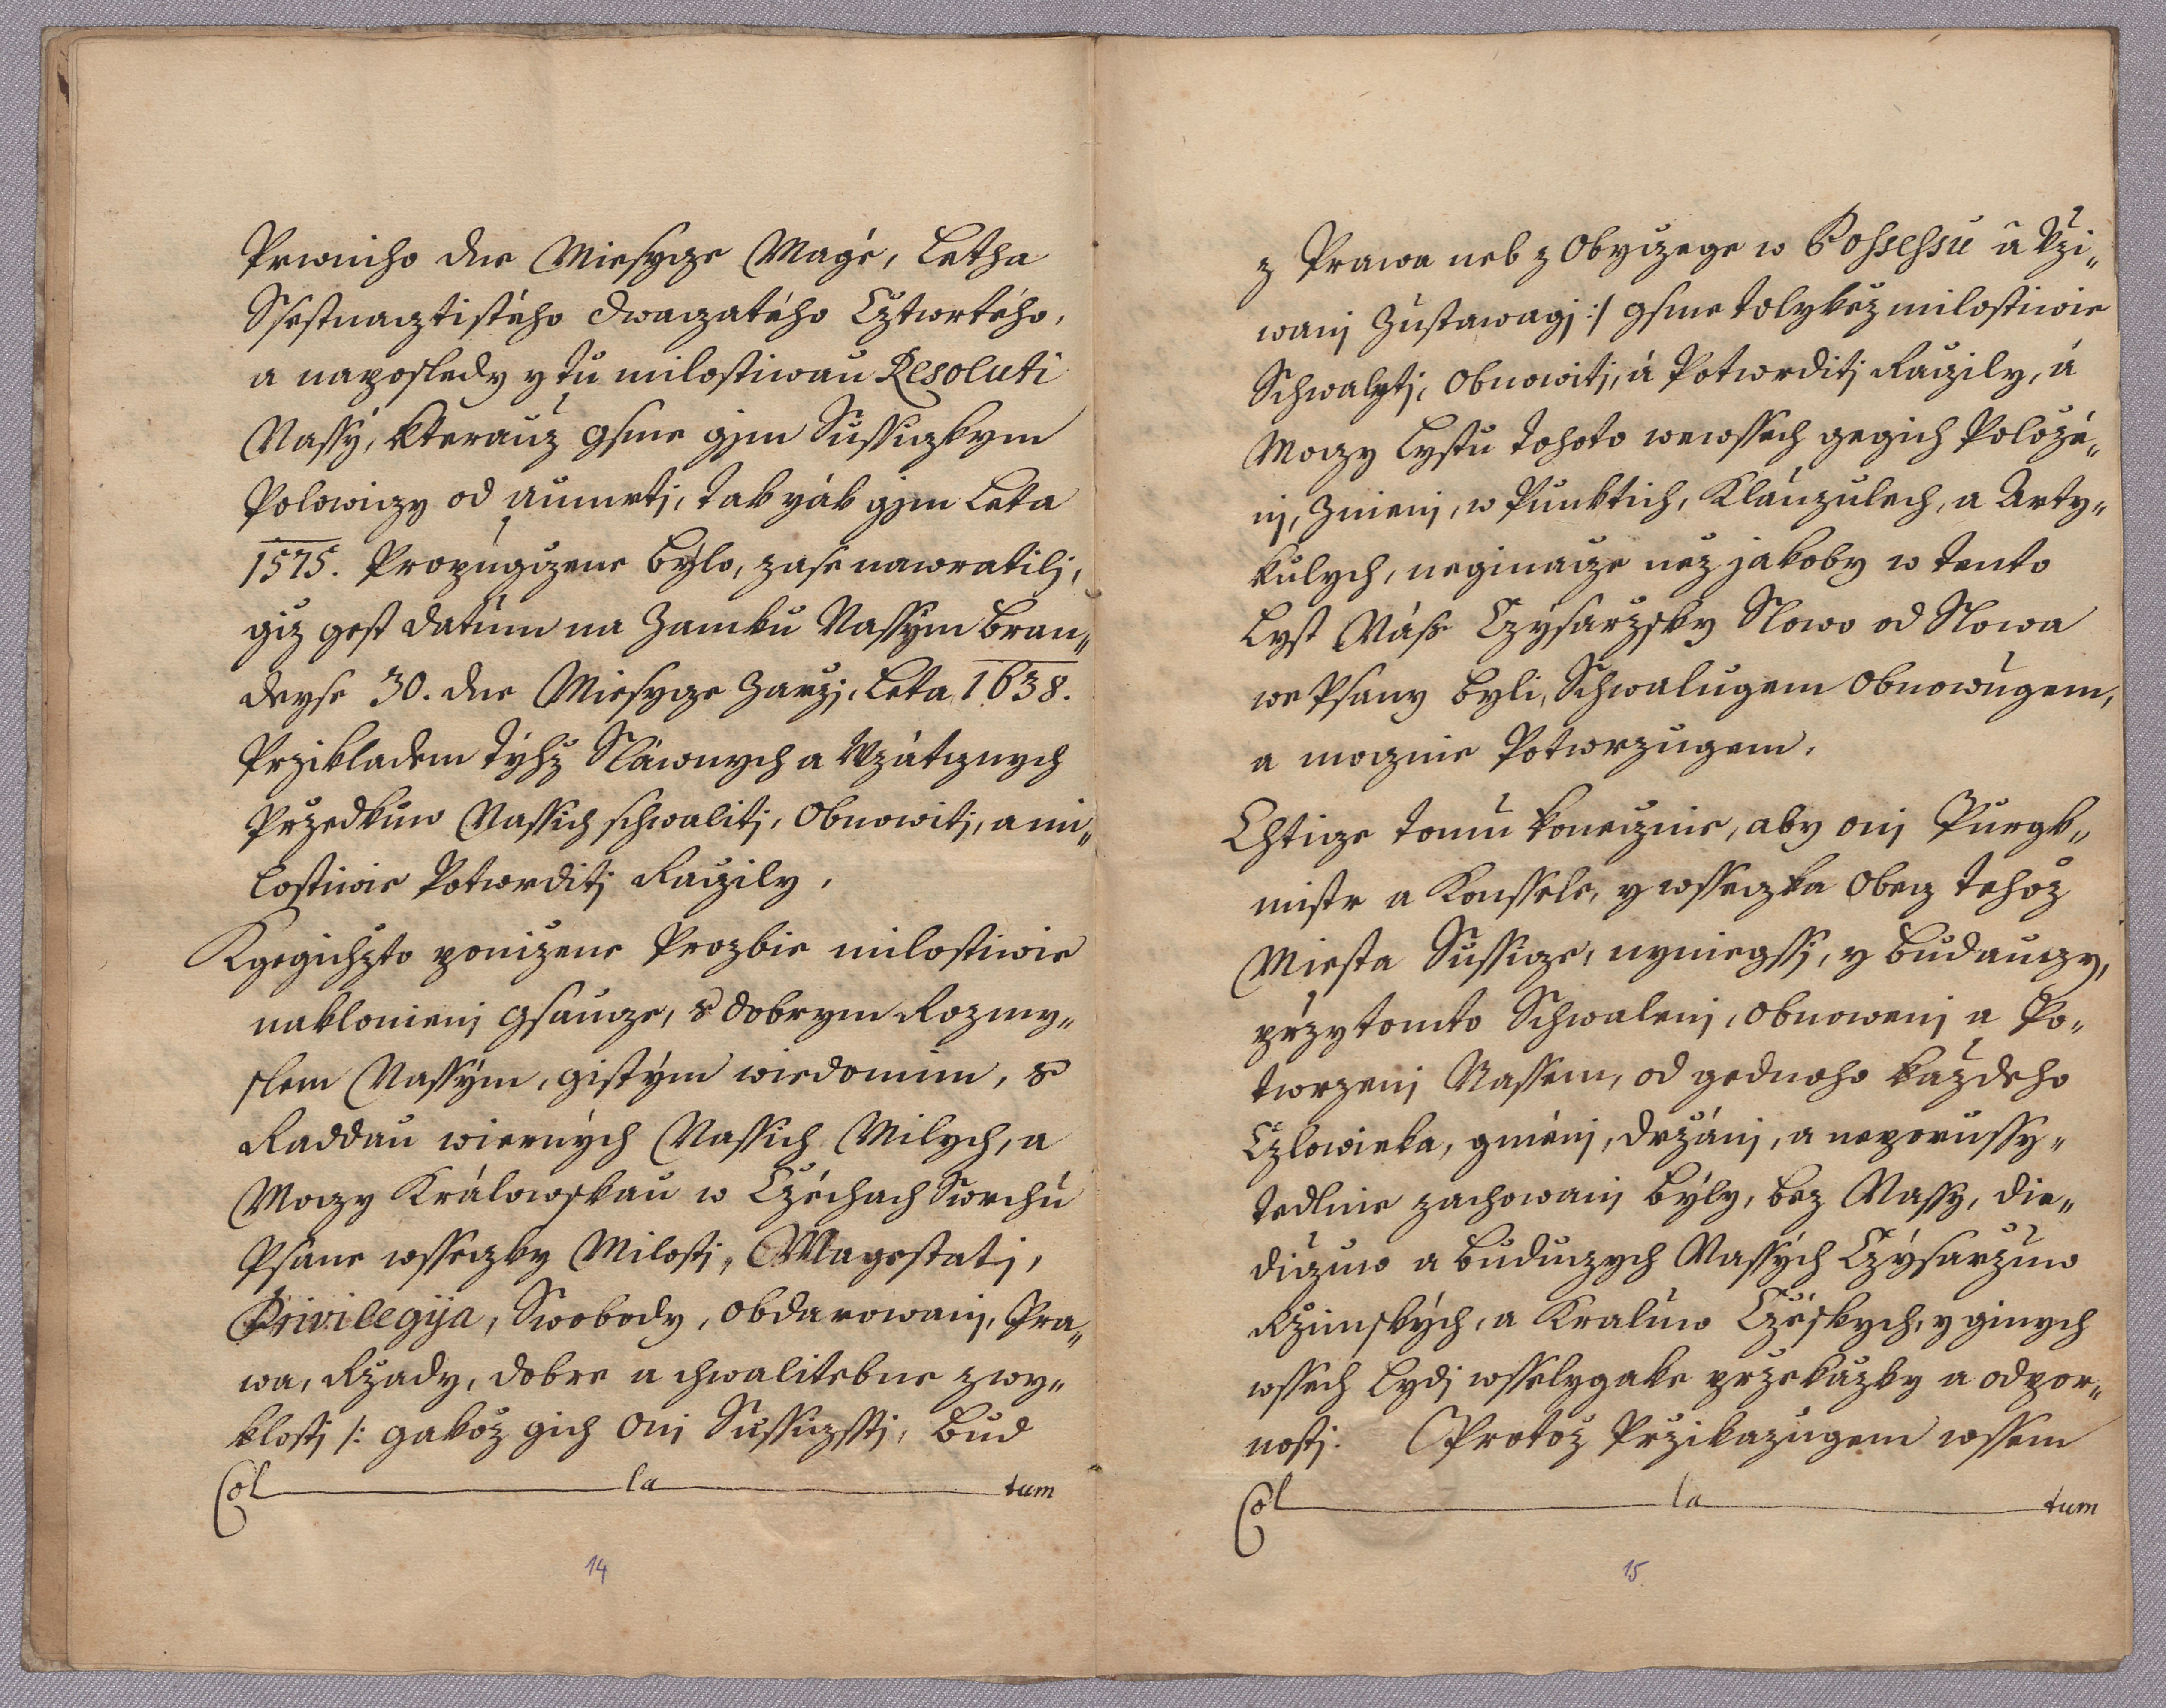 Prwniho dne Miesycze Magé, Letha
Ssestnacztistého dwaczatého Cztwrtého,
a naposledy y tu milostiwau Resoluti
Nassy, kterauz gsme gjm Sussiczkym
Polowiczy od aumrtj, tak yák gjm Leta
1575. Propugczene býlo, zase nawratilj,
giz gest datum na Zamku Nassym Bran„
deyse 30. dne Miesycze Zarzj, Leta 1638.
Przikladem týhz Sláwnych a Vzátcznych
Przedkuw Nassich schwalitj, Obnowitj, a mi„
lostiwie Potwrditj Raczily,
Kgegichzto ponizene Prozbie milostiwie
naklonienj gsaucze, s dobrym Rozmy„
slem Nassým, gistým wiedomim, s
Raddau wierných Nassich Milych, a
Moczy Králowskau w Czéchach Swrchu
Psáne wsseczky Milostj, Magestatj,
Privilegija, Swobody, Obdarowanj, Pra„
wa, Rzady, dobre a chwalitebne zwy„
klostj /: gakoz gich Onj Sussiczsstj, Bud
Col la tum
14
z Prawa neb z Obyczege w Possessu a Vzi„
wanj Zustawagj :/ gsme tolykéz milostiwie
Schwalytj, Obnowitj, á Potwrditj Raczily, á
Moczy Lystu tohoto wewssech gegich Polozé„
nj, Znienj, w Punktich, Klauzulech, a Arty„
kulych, neginacze nez jakoby w tento
Lyst Náss Czýsarzsky Slowo od Slowa
we Psany byli, Schwalugem Obnowugem,
a mocznie Potwrzugem.
Chticze tomu konecznie, aby onj Purgk„
mistr a Konssele, y wsseczka Obecz tehoz
Miesta Sussicze, nyniegssj, y budauczy,
przytomto Schwalenj, Obnowenj a Po„
twrzenj Nassem, od gednoho kazdeho
Czlowieka, gménj, drzánj, a neporussy„
tedlnie zachowanj býly, bez Nassy, die„
diczuw a buduczych Nassých Czýsarzuw
Rzimskych, a Kraluw Czéskych, y ginych
wssech Lydj wsselygake przekazky a odpor„
nostj. Protoz Przikazugem wssem
Col la tum
15